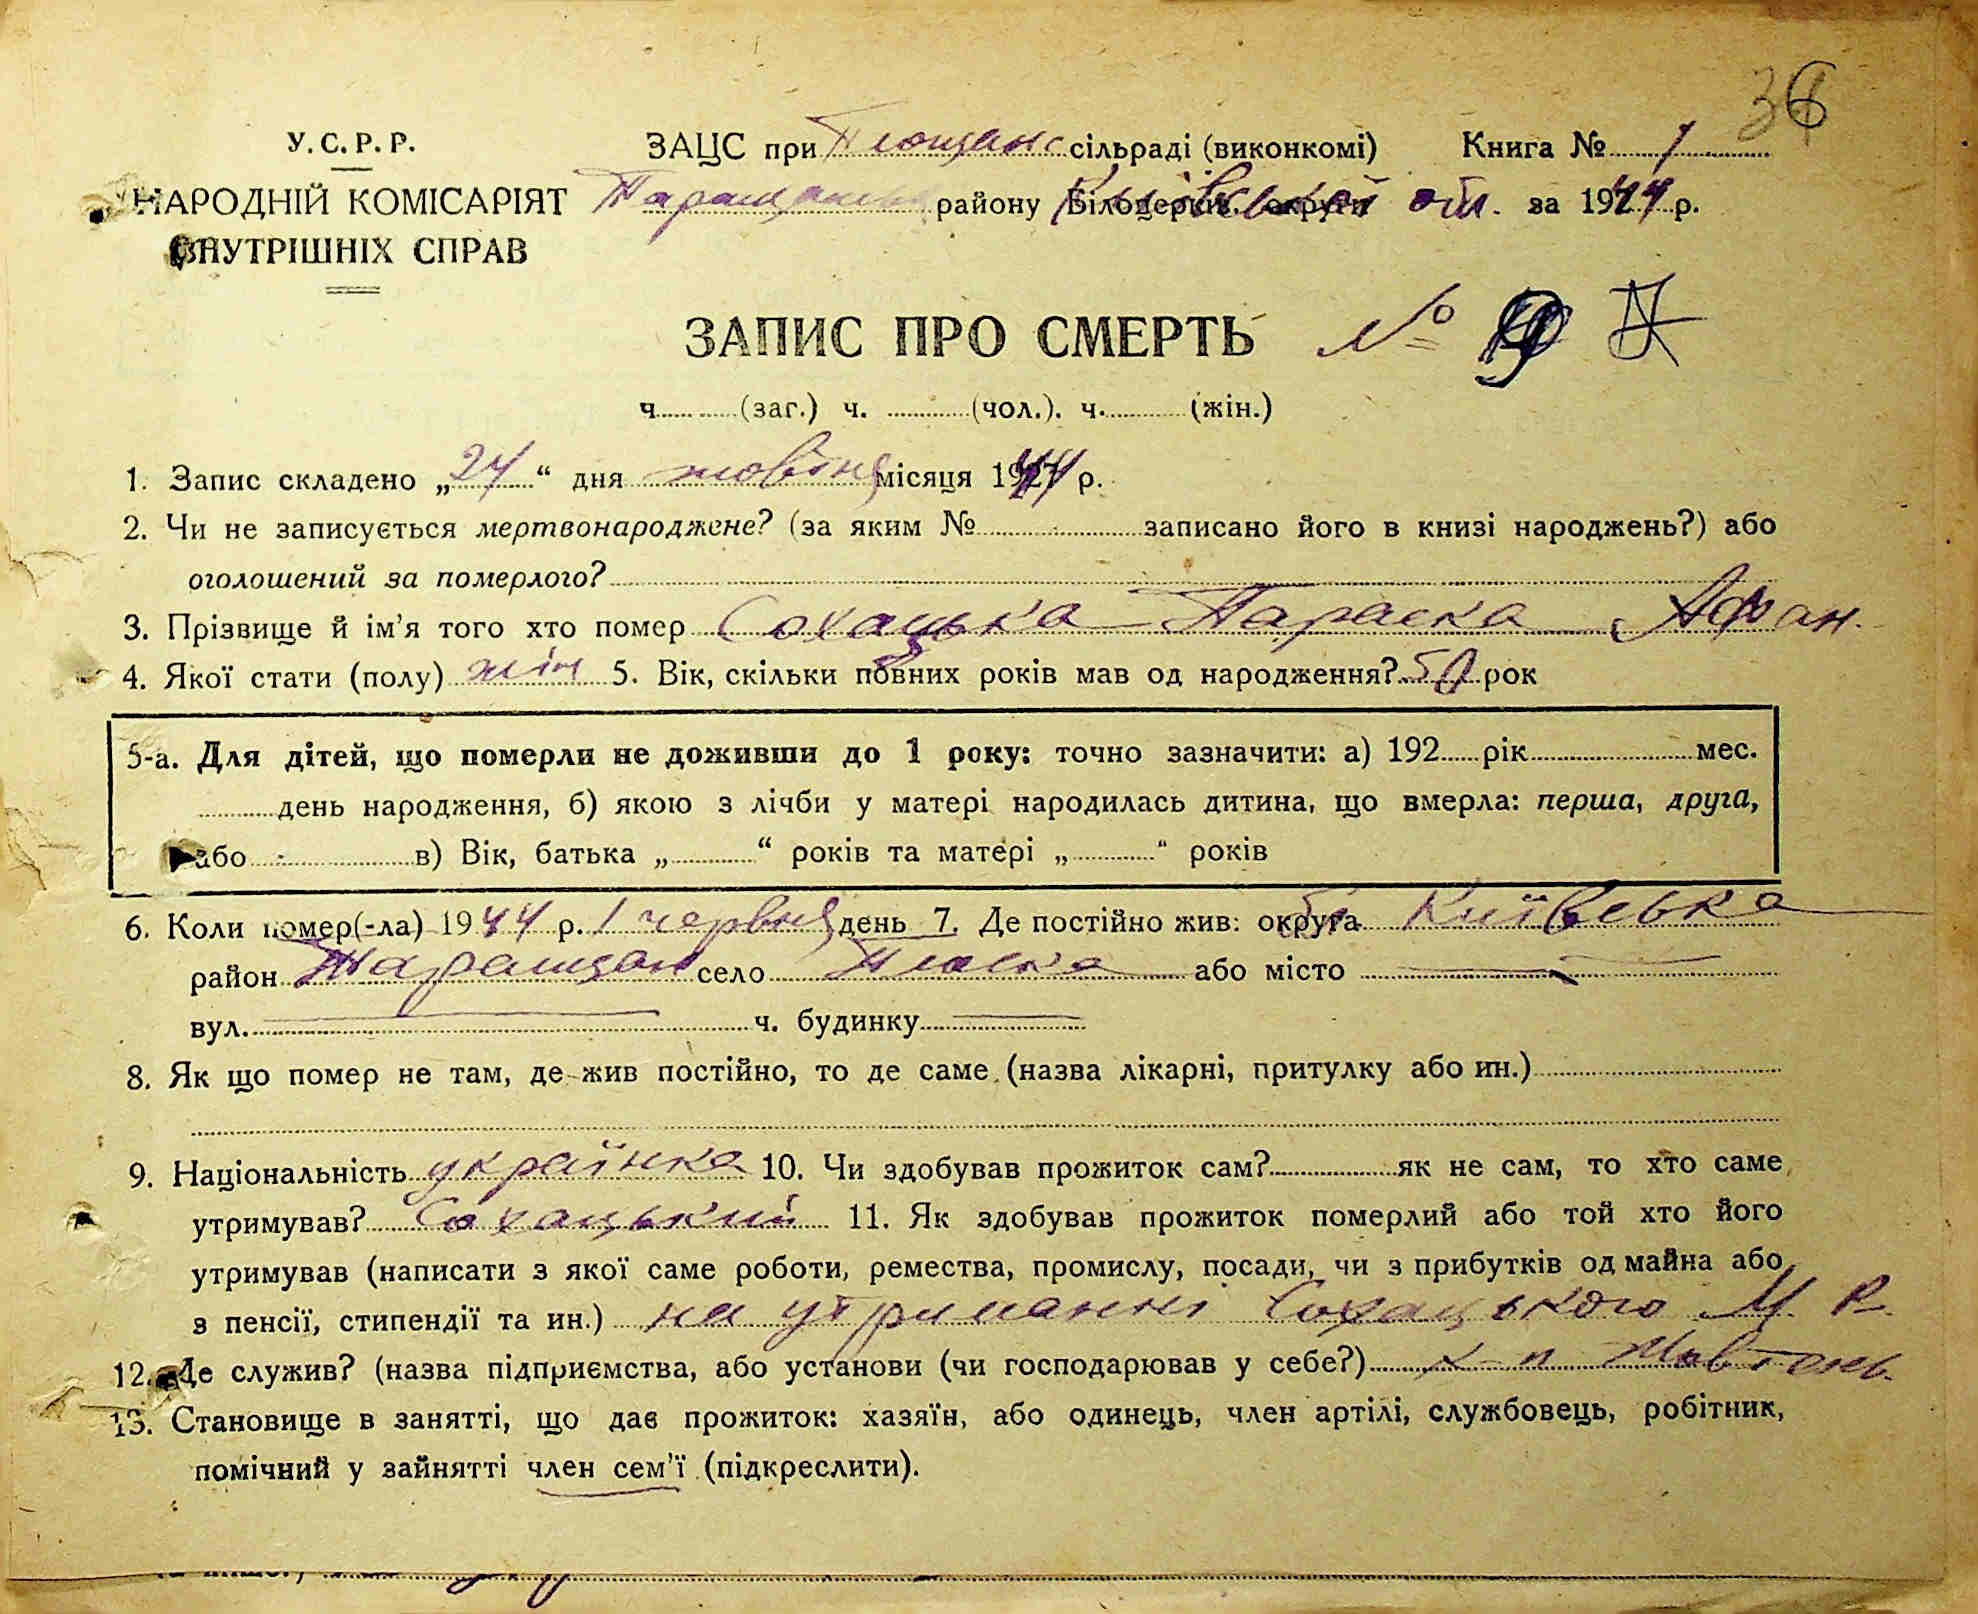 36
У.С.Р.Р.
НАРОДНІЙ КОМІСАРІЯТ
ВНУТРІШНІХ СПРАВ
ЗАЦС при сільраді (виконкомі) Книга № 1
Таращанськ району Київської обл. за 1944 р.
ЗАПИС ПРО СМЕРТЬ № 9
ч. (заг.) ч. (чол.). ч. (жін.)
1. Запис складено „24“ дня жовтня місяця 1944 р.
2. Чи не записується мертвонароджене? (за яким № записано його в книзі народжень?) або
оголошений за померлого?
3. Прізвище й ім'я того хто помер Сохацька Параска Афан.
4. Якої стати (полу) жін 5. Вік, скільки повних років мав од народження? 50 рок
5-а. Для дітей, що померли не доживши до 1 року: точно зазначити: а) 192 рік мес.
день народження, б) якою з лічби у матері народилась дитина, що вмерла: перша, друга,
або в) Вік, батька „ “ років та матері „ “ років
6. Коли помер(-ла) 1944 р. 1 червня день 7. Де постійно жив: округа Київська
район Таращан село або місто
вул. ч. будинку
8. Як що помер не там, де жив постійно, то де саме (назва лікарні, притулку або ин.)
9. Національність українка 10. Чи здобував прожиток сам? як не сам, то хто саме
утримував? Сохацький 11. Як здобував прожиток померлий або той хто його
утримував (написати з якої саме роботи, ремества, промислу, посади, чи з прибутків од майна або
з пенсії, стипендії та ин.) на утриманні Сохацького М. К.
12. Де служив? (назва підприємства, або установи (чи господарював у себе?) к-п Жовтень
13. Становище в занятті, що дає прожиток: хазяїн, або одинець, член артілі, службовець, робітник,
помічний у зайнятті член сем'ї (підкреслити).